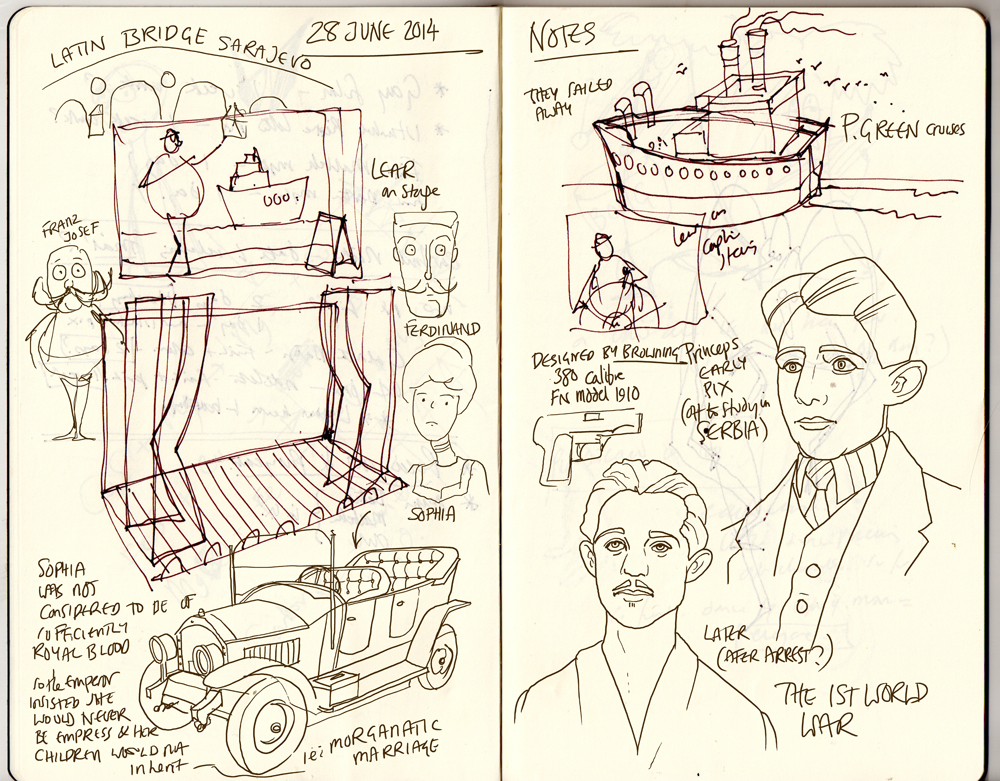 LATIN BRIDGE SARAJEVO
28 JUNE 2014
LEAR
on Stage
FRANZ
JOSEF
FERDINAND
SOPHIA
SOPHIA
WAS NOT
CONSIDERED TO BE OF
SUFFICIENTLY
ROYAL BLOOD
so the EMPEROR
INSISTED SHE
WOULD NEVER
BE EMPRESS & HER
CHILDREN WOULD NOT
inherit
ie: MORGANATIC
MARRIAGE
NOTES
THEY SAILED
AWAY
P. GREEN CRUISES
Lear as
DESIGNED BY BROWNING
380 CALIBRE
FN MODEL 1910
Princeps
EARLY
PIX
(off to study in
SERBIA)
LATER
(AFER ARREST?)
THE 1ST WORLD
WAR